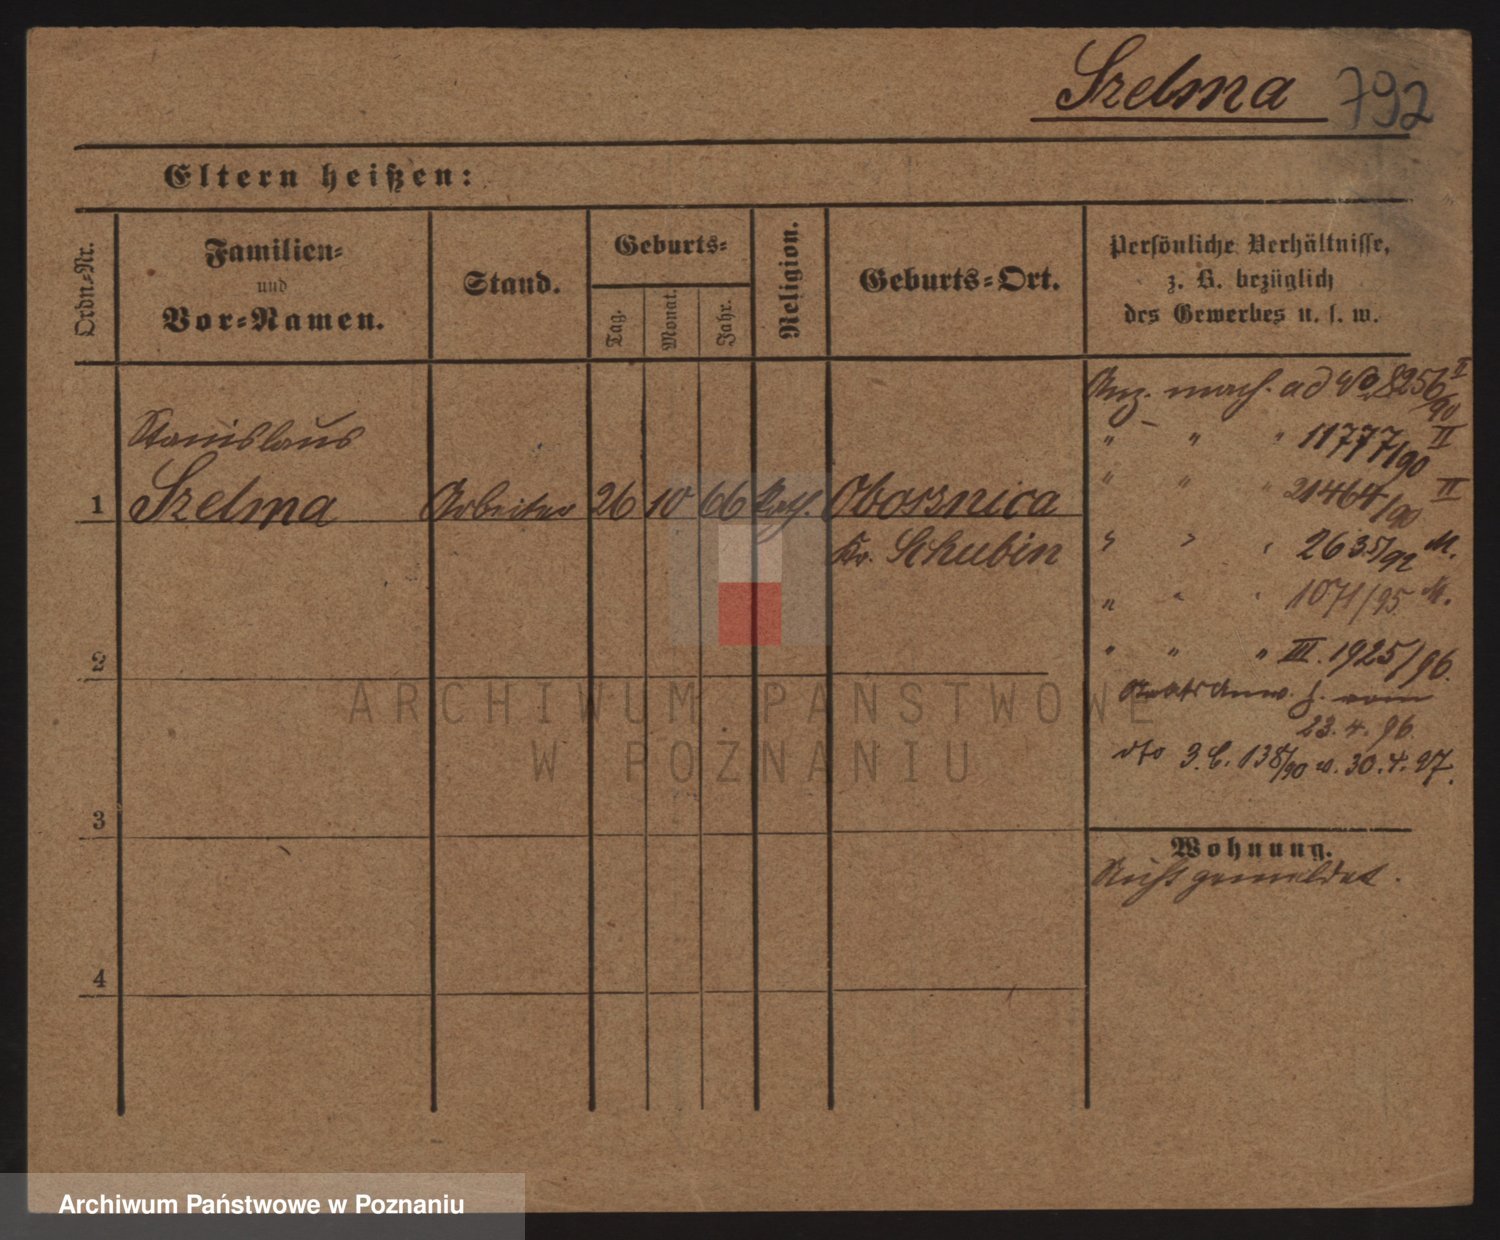 Szelma 792
Eltern heißen:
Ordn.-Nr.
Familien-
und
Vor-Namen.
Stand.
Geburts-
Tag.
Monat.
Jahr.
Religion.
Geburts-Ort.
Persönliche Verhältnisse,
z. B. bezüglich
des Gewerbes u. s. w.
Stanislaus
1 Szelma Arbeiter 26 10 66 Kath. Obosznica
Kr. Schubin
Anz. mach. ad No. 8256/90 II
" " " 11777/90 II
" " " 21464/90 II
" " " 2635/92 M.
" " " 1071/95 M.
" " " III. 1925/96.
StaatsAnw. h. vom
23.4.96.
dto 3.C.138/90 v. 30.4.97.
2
3
4
Wohnung.
Nicht gemeldet.
ARCHIWUM PAŃSTWOWE
W POZNANIU
Archiwum Państwowe w Poznaniu